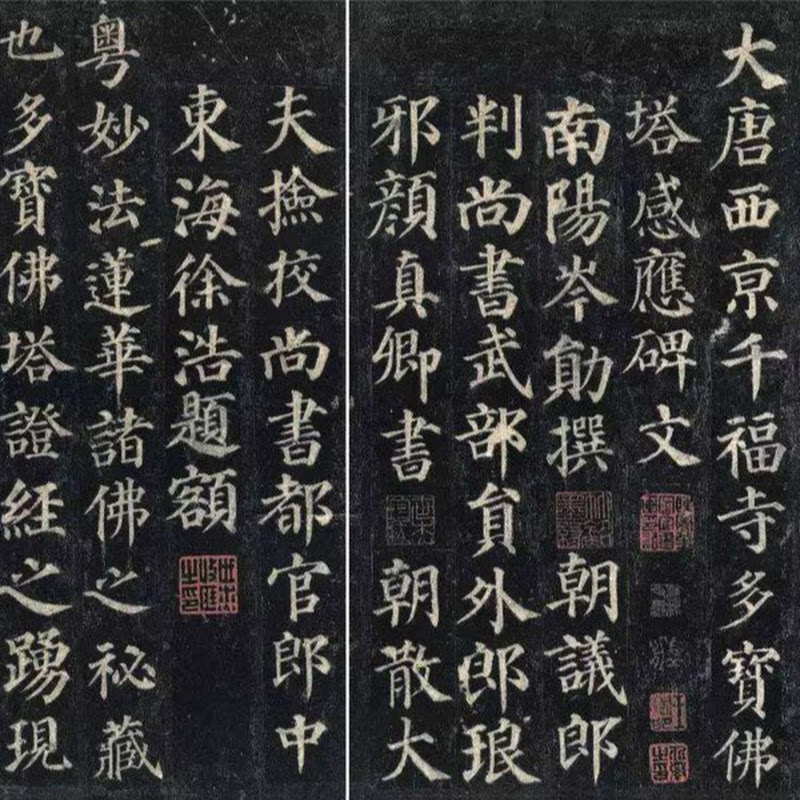 大唐西京千福寺多寶佛
塔感應碑文
南陽岑勛撰 朝議郎
判尚書武部員外郎琅
邪顏真卿書 朝散大
夫撿挍尚書都官郎中
東海徐浩題額
粵妙法蓮華諸佛之祕藏
也多寶佛塔證經之踴現